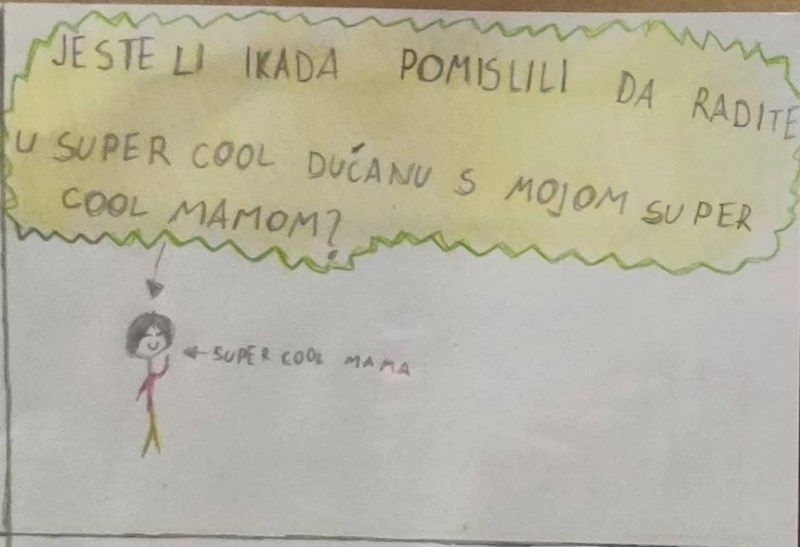 JESTE LI IKADA POMISLILI DA RADITE
U SUPER COOL DUĆANU S MOJOM SUPER
COOL MAMOM?
SUPER COOL MAMA